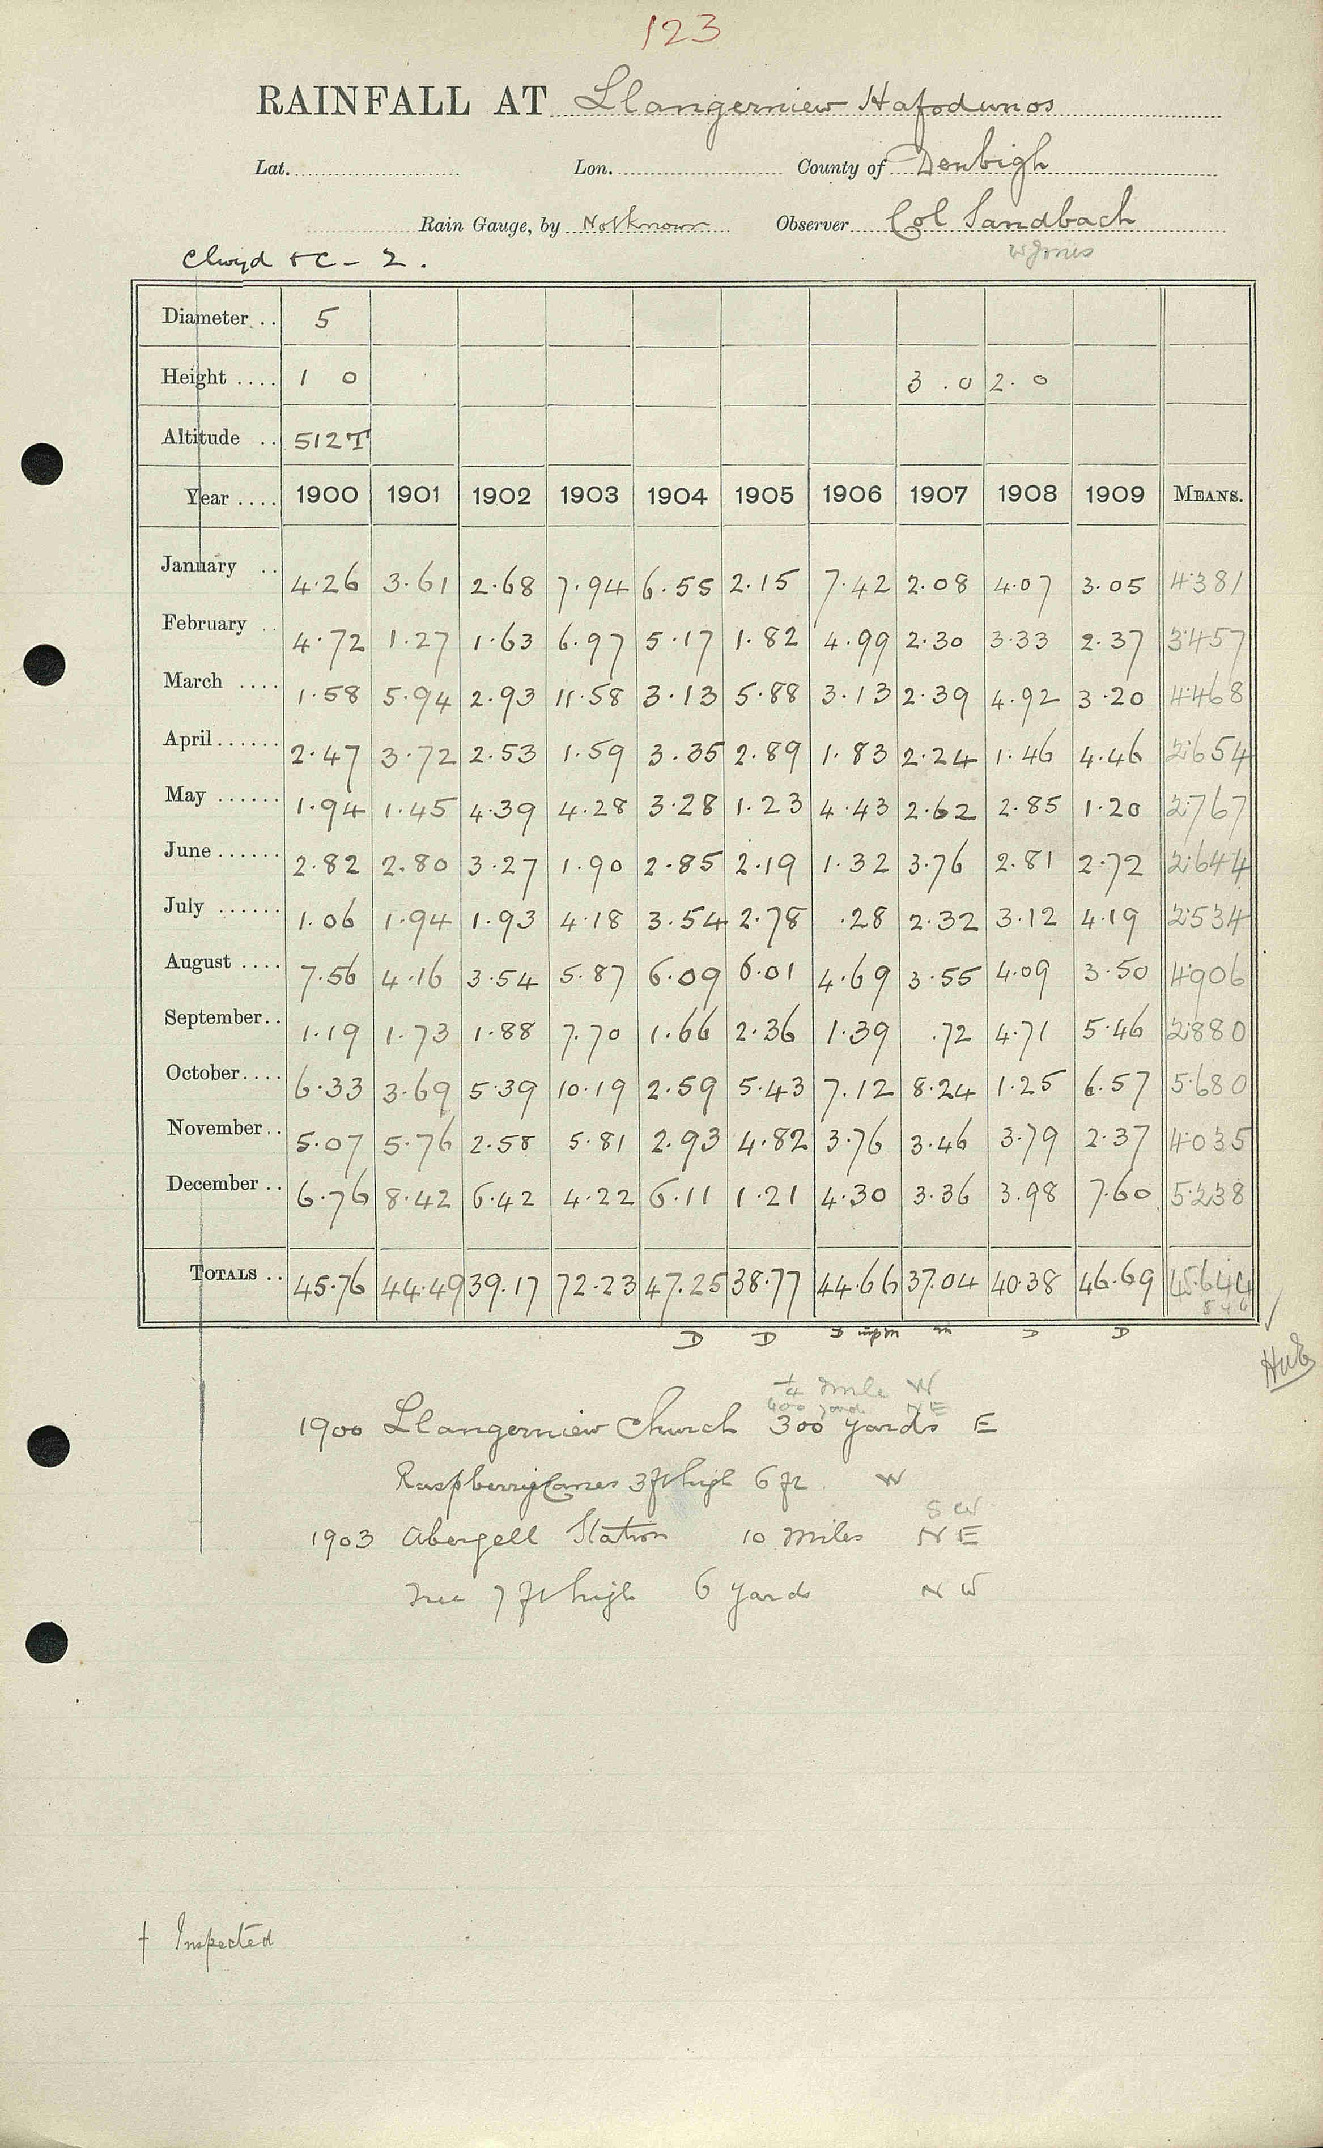 123
RAINFALL AT Llangerniew Hafodunos
Lat. Lon. County of Denbigh
Rain Gauge, by Not known Observer Col Sandbach
W Jones
Clwyd &C - 2.
Diameter .. 5
Height .... 1 0 3.0 2.0
Altitude .. 512T
Year .... 1900 1901 1902 1903 1904 1905 1906 1907 1908 1909 MEANS.
January .. 4.26 3.61 2.68 7.94 6.55 2.15 7.42 2.08 4.07 3.05 4.381
February .. 4.72 1.27 1.63 6.97 5.17 1.82 4.99 2.30 3.33 2.37 3.457
March .... 1.58 5.94 2.93 11.58 3.13 5.88 3.13 2.39 4.92 3.20 4.468
April ...... 2.47 3.72 2.53 1.59 3.35 2.89 1.83 2.24 1.46 4.46 2.654
May ...... 1.94 1.45 4.39 4.28 3.28 1.23 4.43 2.62 2.85 1.20 2.767
June ...... 2.82 2.80 3.27 1.90 2.85 2.19 1.32 3.76 2.81 2.72 2.644
July ...... 1.06 1.94 1.93 4.18 3.54 2.78 .28 2.32 3.12 4.19 2.534
August .... 7.56 4.16 3.54 5.87 6.09 6.01 4.69 3.55 4.09 3.50 4.906
September .. 1.19 1.73 1.88 7.70 1.66 2.36 1.39 .72 4.71 5.46 2.880
October .... 6.33 3.69 5.39 10.19 2.59 5.43 7.12 8.24 1.25 6.57 5.680
November .. 5.07 5.76 2.58 5.81 2.93 4.82 3.76 3.46 3.79 2.37 4.035
December .. 6.76 8.42 6.42 4.22 6.11 1.21 4.30 3.36 3.98 7.60 5.238
TOTALS .. 45.76 44.49 39.17 72.23 47.25 38.77 44.66 37.04 40.38 46.69 45.644
D D D m D D
¼ mile W
400 yards NE
1900 Llangerniew Church 300 yards E
Raspberry Canes 3ft high 6 ft W
S W
1903 Abergell Station 10 miles N E
Tree 7 ft high 6 yards N W
† Inspected